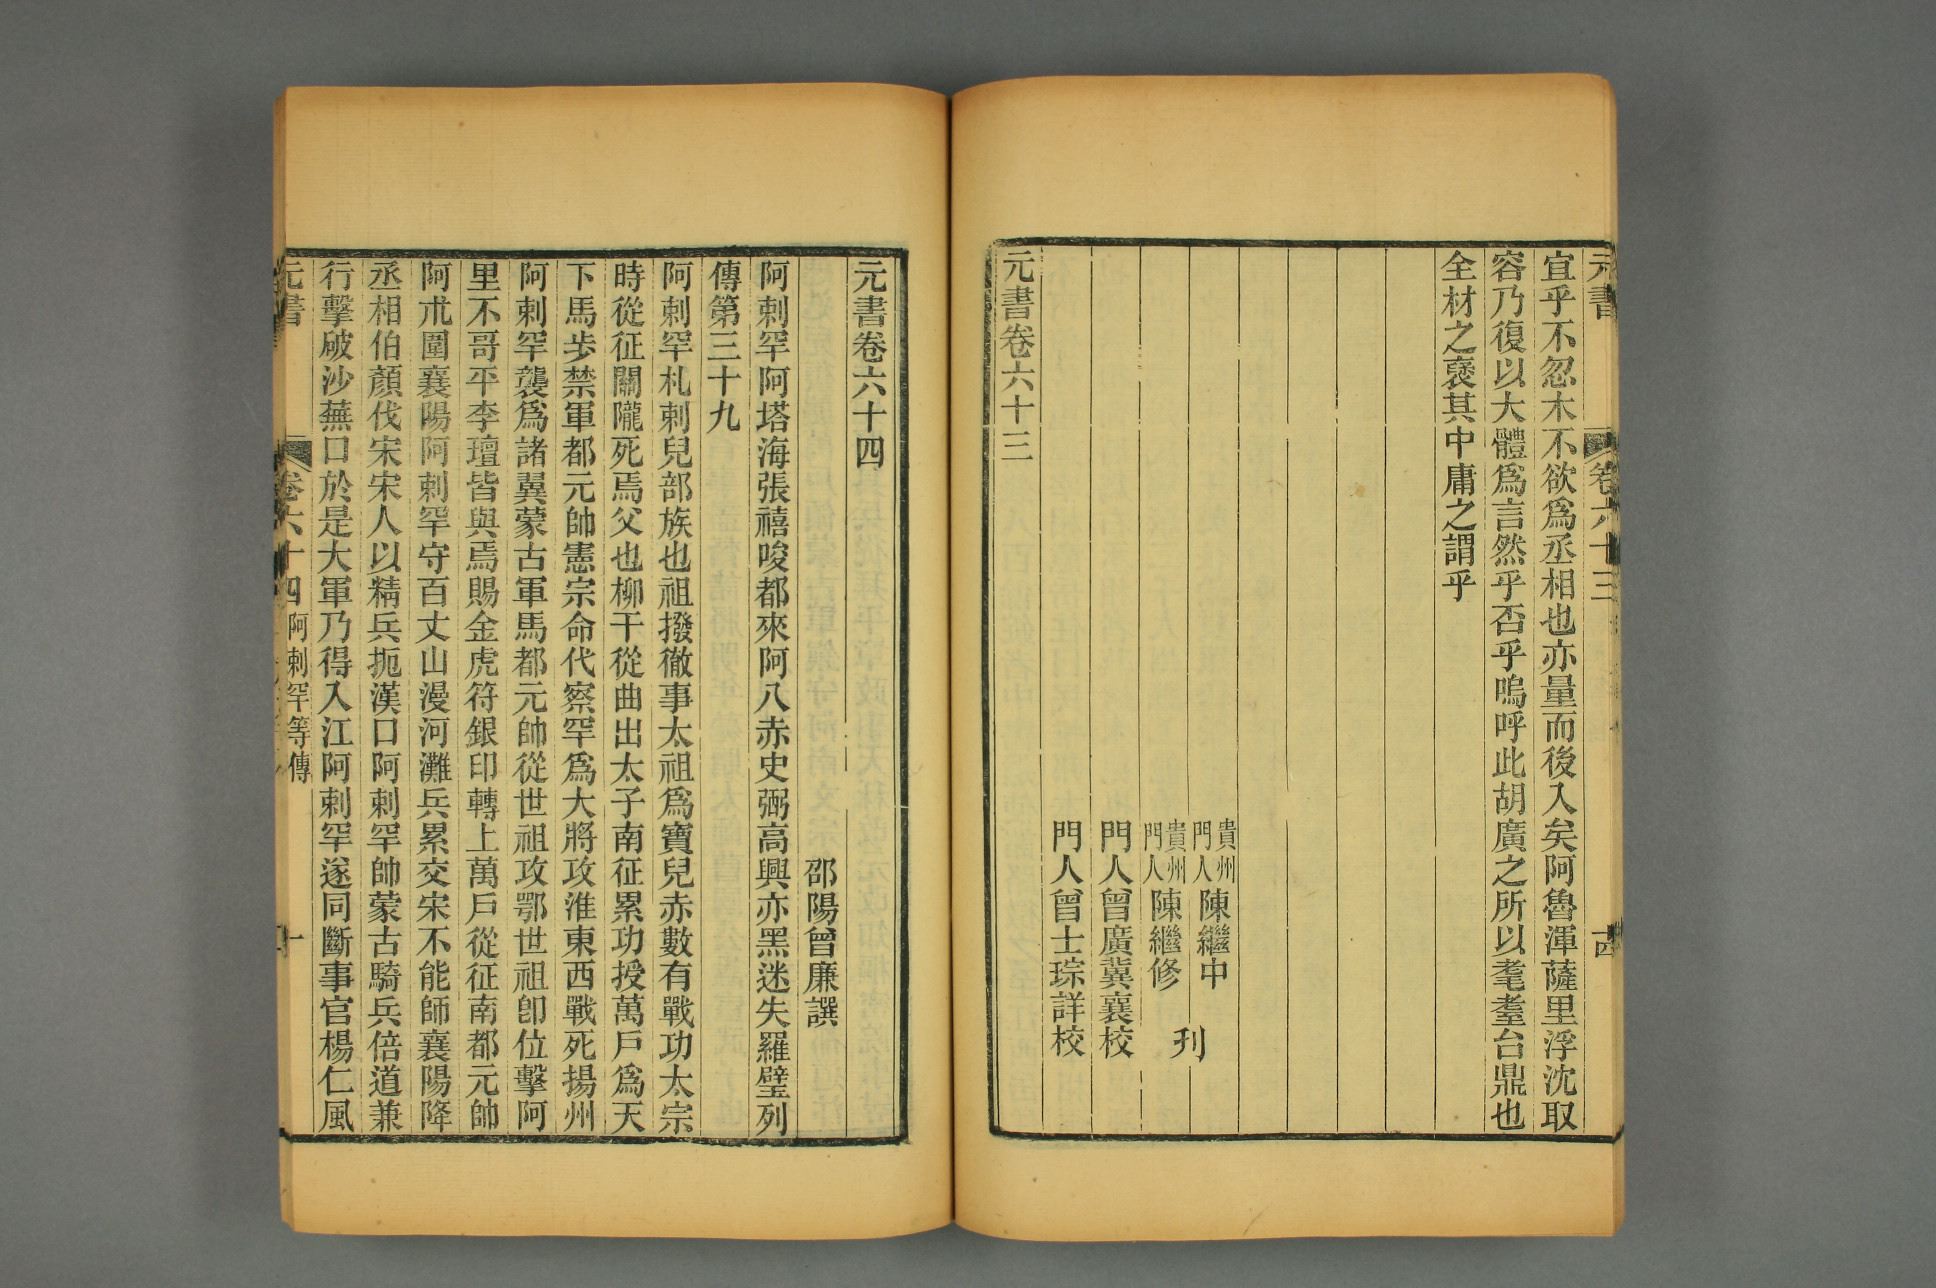 元書
卷六十三
十四
宜乎不忽木不欲爲丞相也亦量而後入矣阿魯渾薩里浮沈取
容乃復以大體爲言然乎否乎嗚呼此胡廣之所以耄耋台鼎也
全材之褎其中庸之謂乎
貴州門人陳繼中
貴州門人陳繼修
刋
門人曾廣冀襄校
門人曾士琮詳校
元書卷六十三
元書卷六十四
邵陽曾廉譔
阿剌罕阿塔海張禧唆都來阿八赤史弼高興亦黑迷失羅璧列
傳第三十九
阿剌罕札剌兒部族也祖撥徹事太祖爲寶兒赤數有戰功太宗
時從征關隴死焉父也柳干從曲出太子南征累功授萬戶爲天
下馬步禁軍都元帥憲宗命代察罕爲大將攻淮東西戰死揚州
阿剌罕襲爲諸翼蒙古軍馬都元帥從世祖攻鄂世祖卽位擊阿
里不哥平李璮皆與焉賜金虎符銀印轉上萬戶從征南都元帥
阿朮圍襄陽阿剌罕守百丈山漫河灘兵累交宋不能師襄陽降
丞相伯顏伐宋宋人以精兵扼漢口阿剌罕帥蒙古騎兵倍道兼
行擊破沙蕪口於是大軍乃得入江阿剌罕遂同斷事官楊仁風
元書
卷六十四
阿剌罕等傳
一